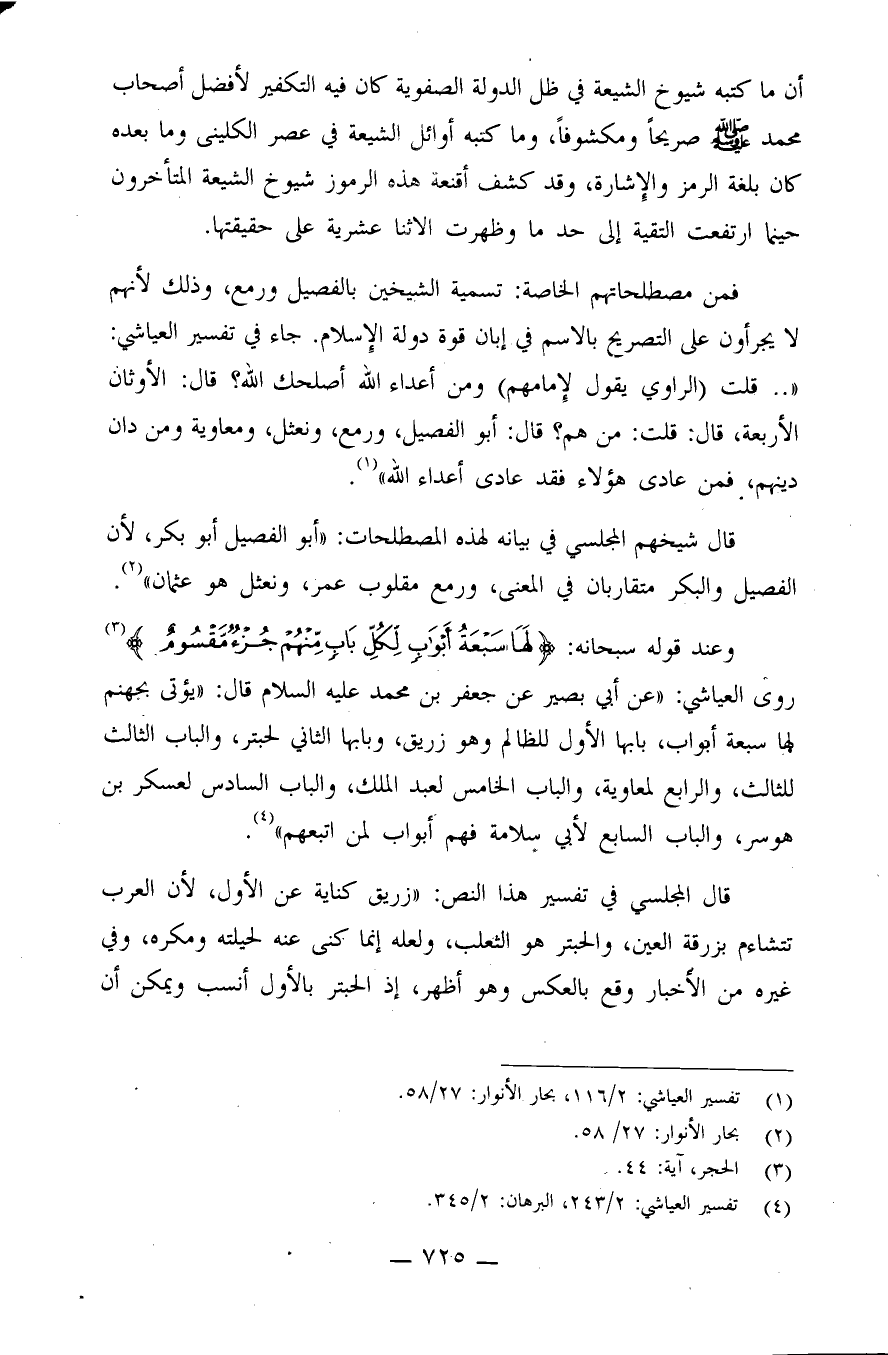 أن ما كتبه شيوخ الشيعة في ظل الدولة الصفوية كان فيه التكفير لأفضل أصحاب
محمد ﷺ صريحاً ومكشوفاً، وما كتبه أوائل الشيعة في عصر الكليني وما بعده
كان بلغة الرمز والإشارة، وقد كشف أقنعة هذه الرموز شيوخ الشيعة المتأخرون
حينما ارتفعت التقية إلى حد ما وظهرت الاثنا عشرية على حقيقتها.
فمن مصطلحاتهم الخاصة: تسمية الشيخين بالفصيل ورمع، وذلك لأنهم
لا يجرأون على التصريح بالاسم في إبان قوة دولة الإسلام. جاء في تفسير العياشي:
«.. قلت (الراوي يقول لإمامهم) ومن أعداء الله أصلحك الله؟ قال: الأوثان
الأربعة، قال: قلت: من هم؟ قال: أبو الفصيل، ورمع، ونعثل، ومعاوية ومن دان
دينهم، فمن عادى هؤلاء فقد عادى أعداء الله»(١).
قال شيخهم المجلسي في بيانه لهذه المصطلحات: «أبو الفصيل أبو بكر، لأن
الفصيل والبكر متقاربان في المعنى، ورمع مقلوب عمر، ونعثل هو عثمان»(٢).
وعند قوله سبحانه: ﴿لَهَا سَبْعَةُ أَبْوَابٍ لِّكُلِّ بَابٍ مِّنْهُمْ جُزْءٌ مَّقْسُومٌ﴾(٣)
روى العياشي: «عن أبي بصير عن جعفر بن محمد عليه السلام قال: «يؤتى بجهنم
لها سبعة أبواب، بابها الأول للظالم وهو زريق، وبابها الثاني لحبتر، والباب الثالث
للثالث، والرابع لمعاوية، والباب الخامس لعبد الملك، والباب السادس لعسكر بن
هوسر، والباب السابع لأبي سلامة فهم أبواب لمن اتبعهم»(٤).
قال المجلسي في تفسير هذا النص: «زريق كناية عن الأول، لأن العرب
تتشاءم بزرقة العين، والحبتر هو الثعلب، ولعله إنما كنى عنه لحيلته ومكره، وفي
غيره من الأخبار وقع بالعكس وهو أظهر، إذ الحبتر بالأول أنسب ويمكن أن
(١) تفسير العياشي: ١١٦/٢، بحار الأنوار: ٥٨/٢٧.
(٢) بحار الأنوار: ٢٧/ ٥٨.
(٣) الحجر، آية: ٤٤.
(٤) تفسير العياشي: ٢٤٣/٢، البرهان: ٣٤٥/٢.
— ٧٢٥ —